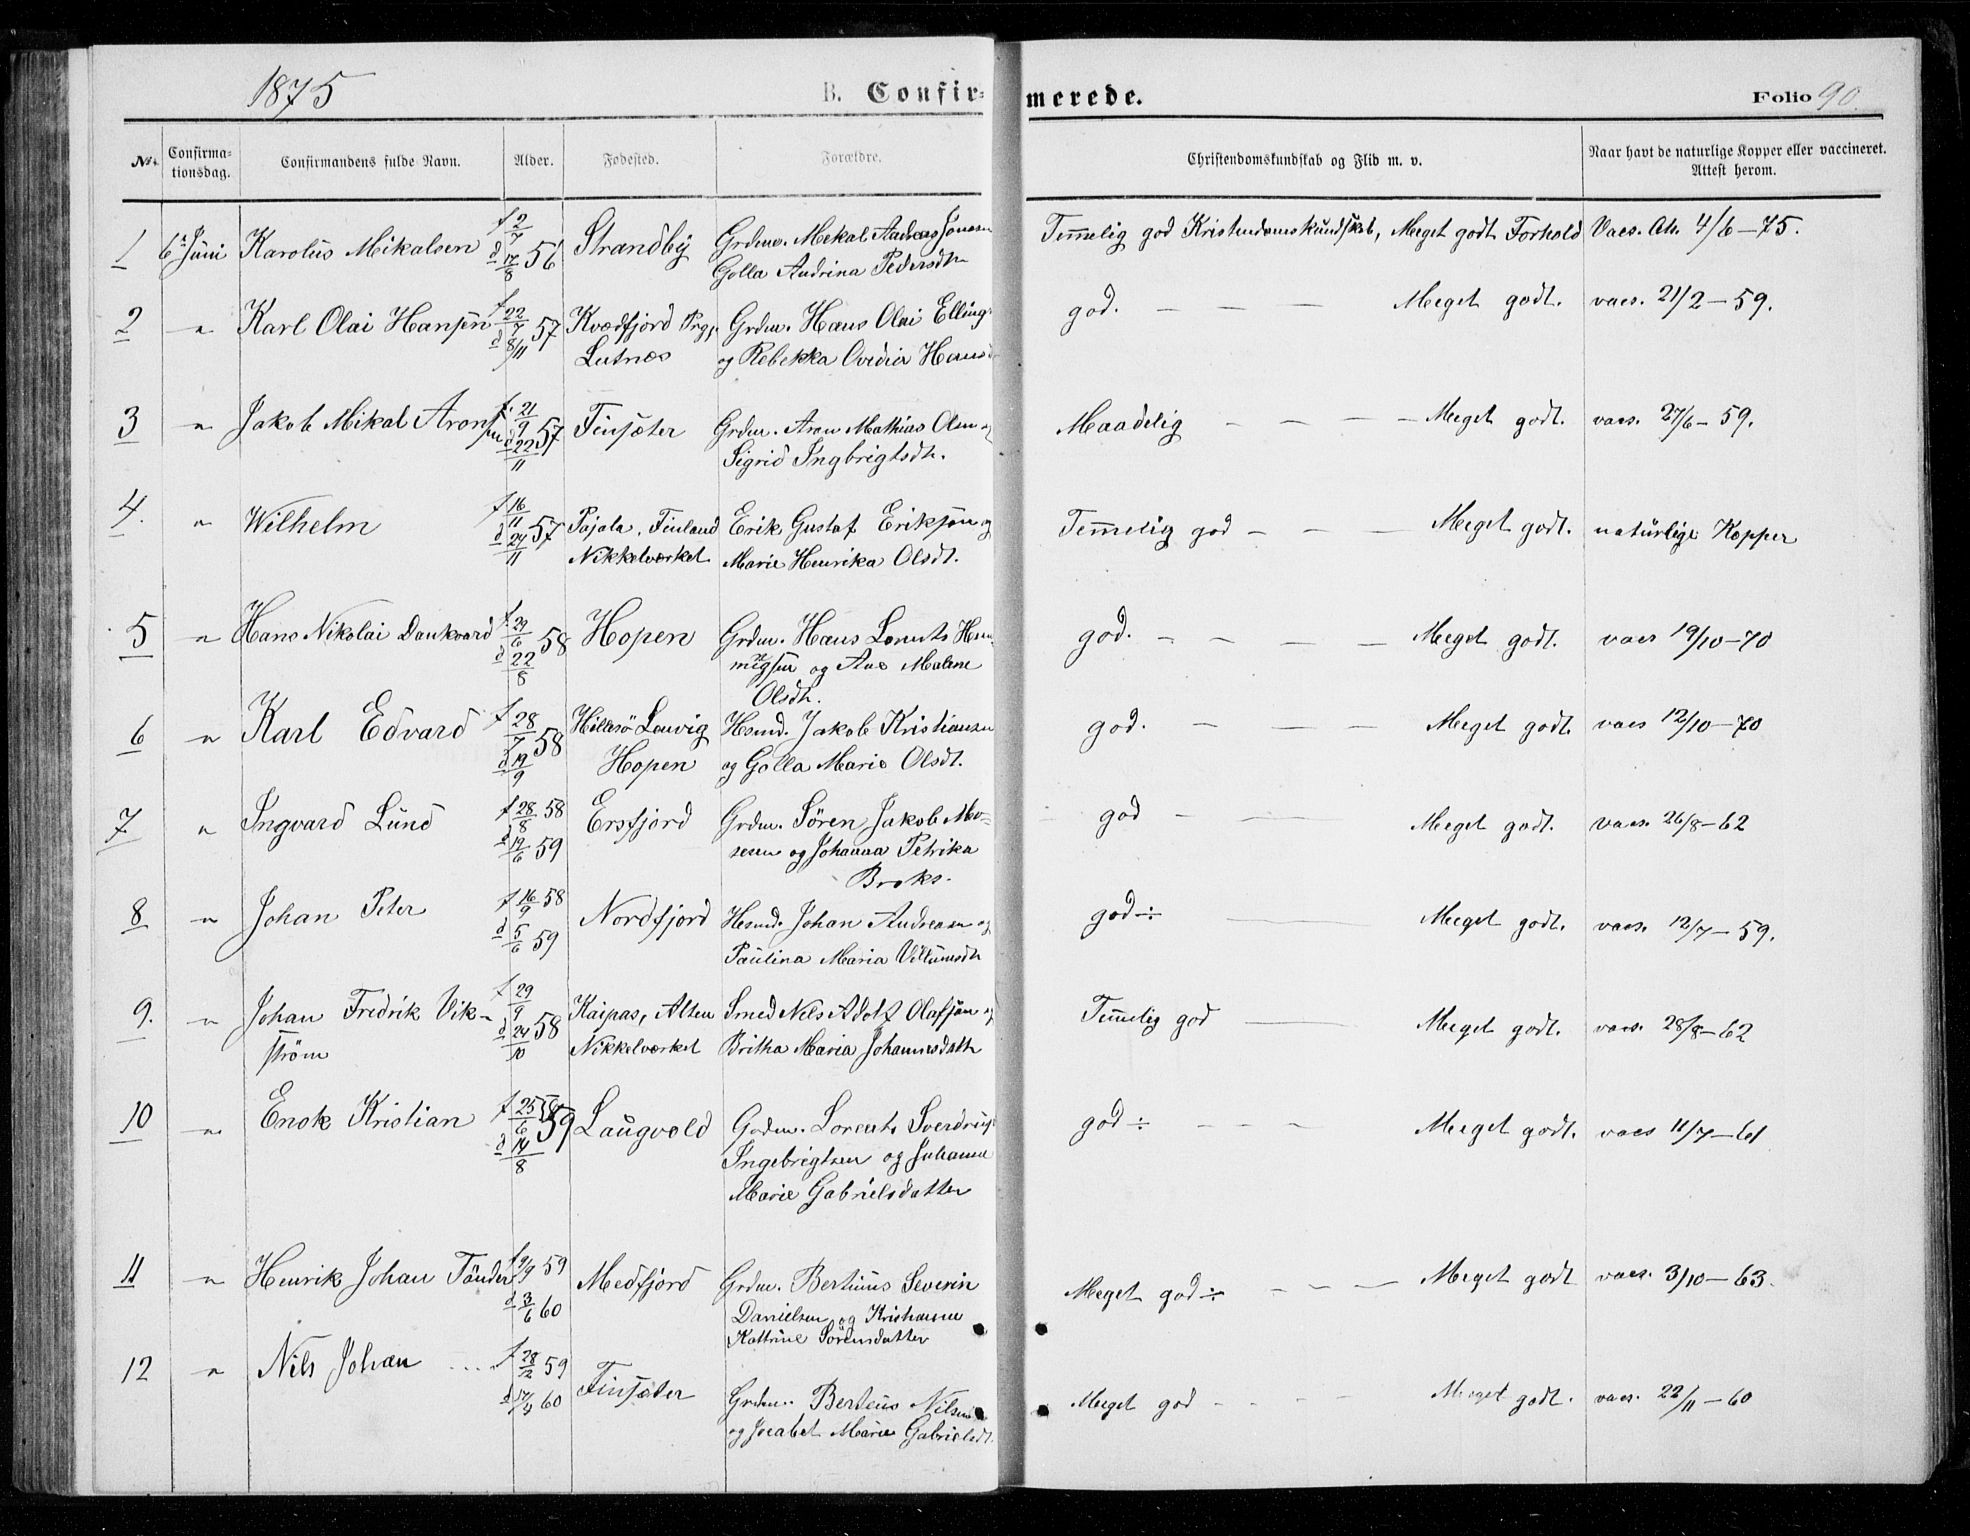 1875 B. Confirmerede. Folio 90.
No. Confirmationsdag. Confirmandens fulde Navn. Alder. Fødested. Forældre. Christendomskundskab og Flid m. v. Naar havt de naturlige Kopper eller vaccineret. Attest herom.
1 6te Juni Karolus Mikalsen f 2/7 d 17/8 56 Strandby Grdm. Mekal Andreas Jonsen Temmelig god Kristendomskundskab, Meget godt Forhold Vacc. Att. 4/6-75.
Golla Andrina Pedersdtr
2 " Karl Olai Hansen f 22/7 d 8/11 57 Kvædfjord Prg., Grdm. Hans Olai Elling god. — — — Meget godt. vacc. 21/2-59.
Lutnæs og Rebekka Ovidia Hansd
3 " Jakob Mikal Aronsen f. 21/9 d 22/11 57 Finsæter Grdm. Aron Mathias Olsen og Maadelig — — — Meget godt. vacc. 27/6-59.
Sigrid Ingbrigtsdtr.
4. " Wilhelm f 16/11 d 24/11 57 Pajala, Finland Erik Gustaf Eriksson og Temmelig god — — — Meget godt. naturlige Kopper
Nikkelværket Marie Henrika Olsdt.
5 " Hans Nikolai Dankvard f. 29/6 d 22/8 58 Hopen Grdm. Hans Lorents Hem- god. — — — Meget godt. vacc 19/10-70
migsen og Ane Malene
Olsdtr.
6 " Karl Edvard f 28/7 d 19/9 58 Hillesö Lauvig Hsmd. Jakob Kristiansen god. — — — Meget godt. vacc 12/10-70
Hopen og Golla Marie Olsdt.
7 " Ingvard Lund f 28/8 58 d 19/6 59 Ersfjord Grdm. Sören Jakob Mo- god — — — Meget godt. vacc. 26/8-62
sesen og Johanna Petrika
Broks.
8 " Johan Peter f 16/9 58 d 5/6 59 Nordfjord Hsmd. Johan Andreasen og god÷ — — Meget godt. vacc. 12/7-59.
Paulina Maria Villumsdtr
9. " Johan Fredrik Vik- f 29/9 d 24/10 58 Kaipas, Alten Smed Nils Adolf Olafson og Temmelig god — — Meget godt. vacc. 28/8-62
strøm Nikkelværket Britha Maria Johannesdattr
10 " Enok Kristian f 25/6 d 14/8 59 Laugvold Grdm. Lorents Sverdrup god÷ — — — Meget godt. vacc 11/7-61
Ingebrigtsen og Johanna
Marie Gabrielsdatter
11 " Henrik Johan Tönder f 9/9 59 d 3/6 60 Medfjord Grdm. Bertinus Severin Meget god÷ — — — Meget godt vacc. 3/10-63.
Danielsen og Kristianna
Kattrine Sörensdatter
12 " Nils Johan f 28/12 59 d 17/4 60 Finsæter Grdm. Berteus Nilsen Meget god — — — Meget godt. vacc. 22/11-60
og Marie Gabrielsdt.